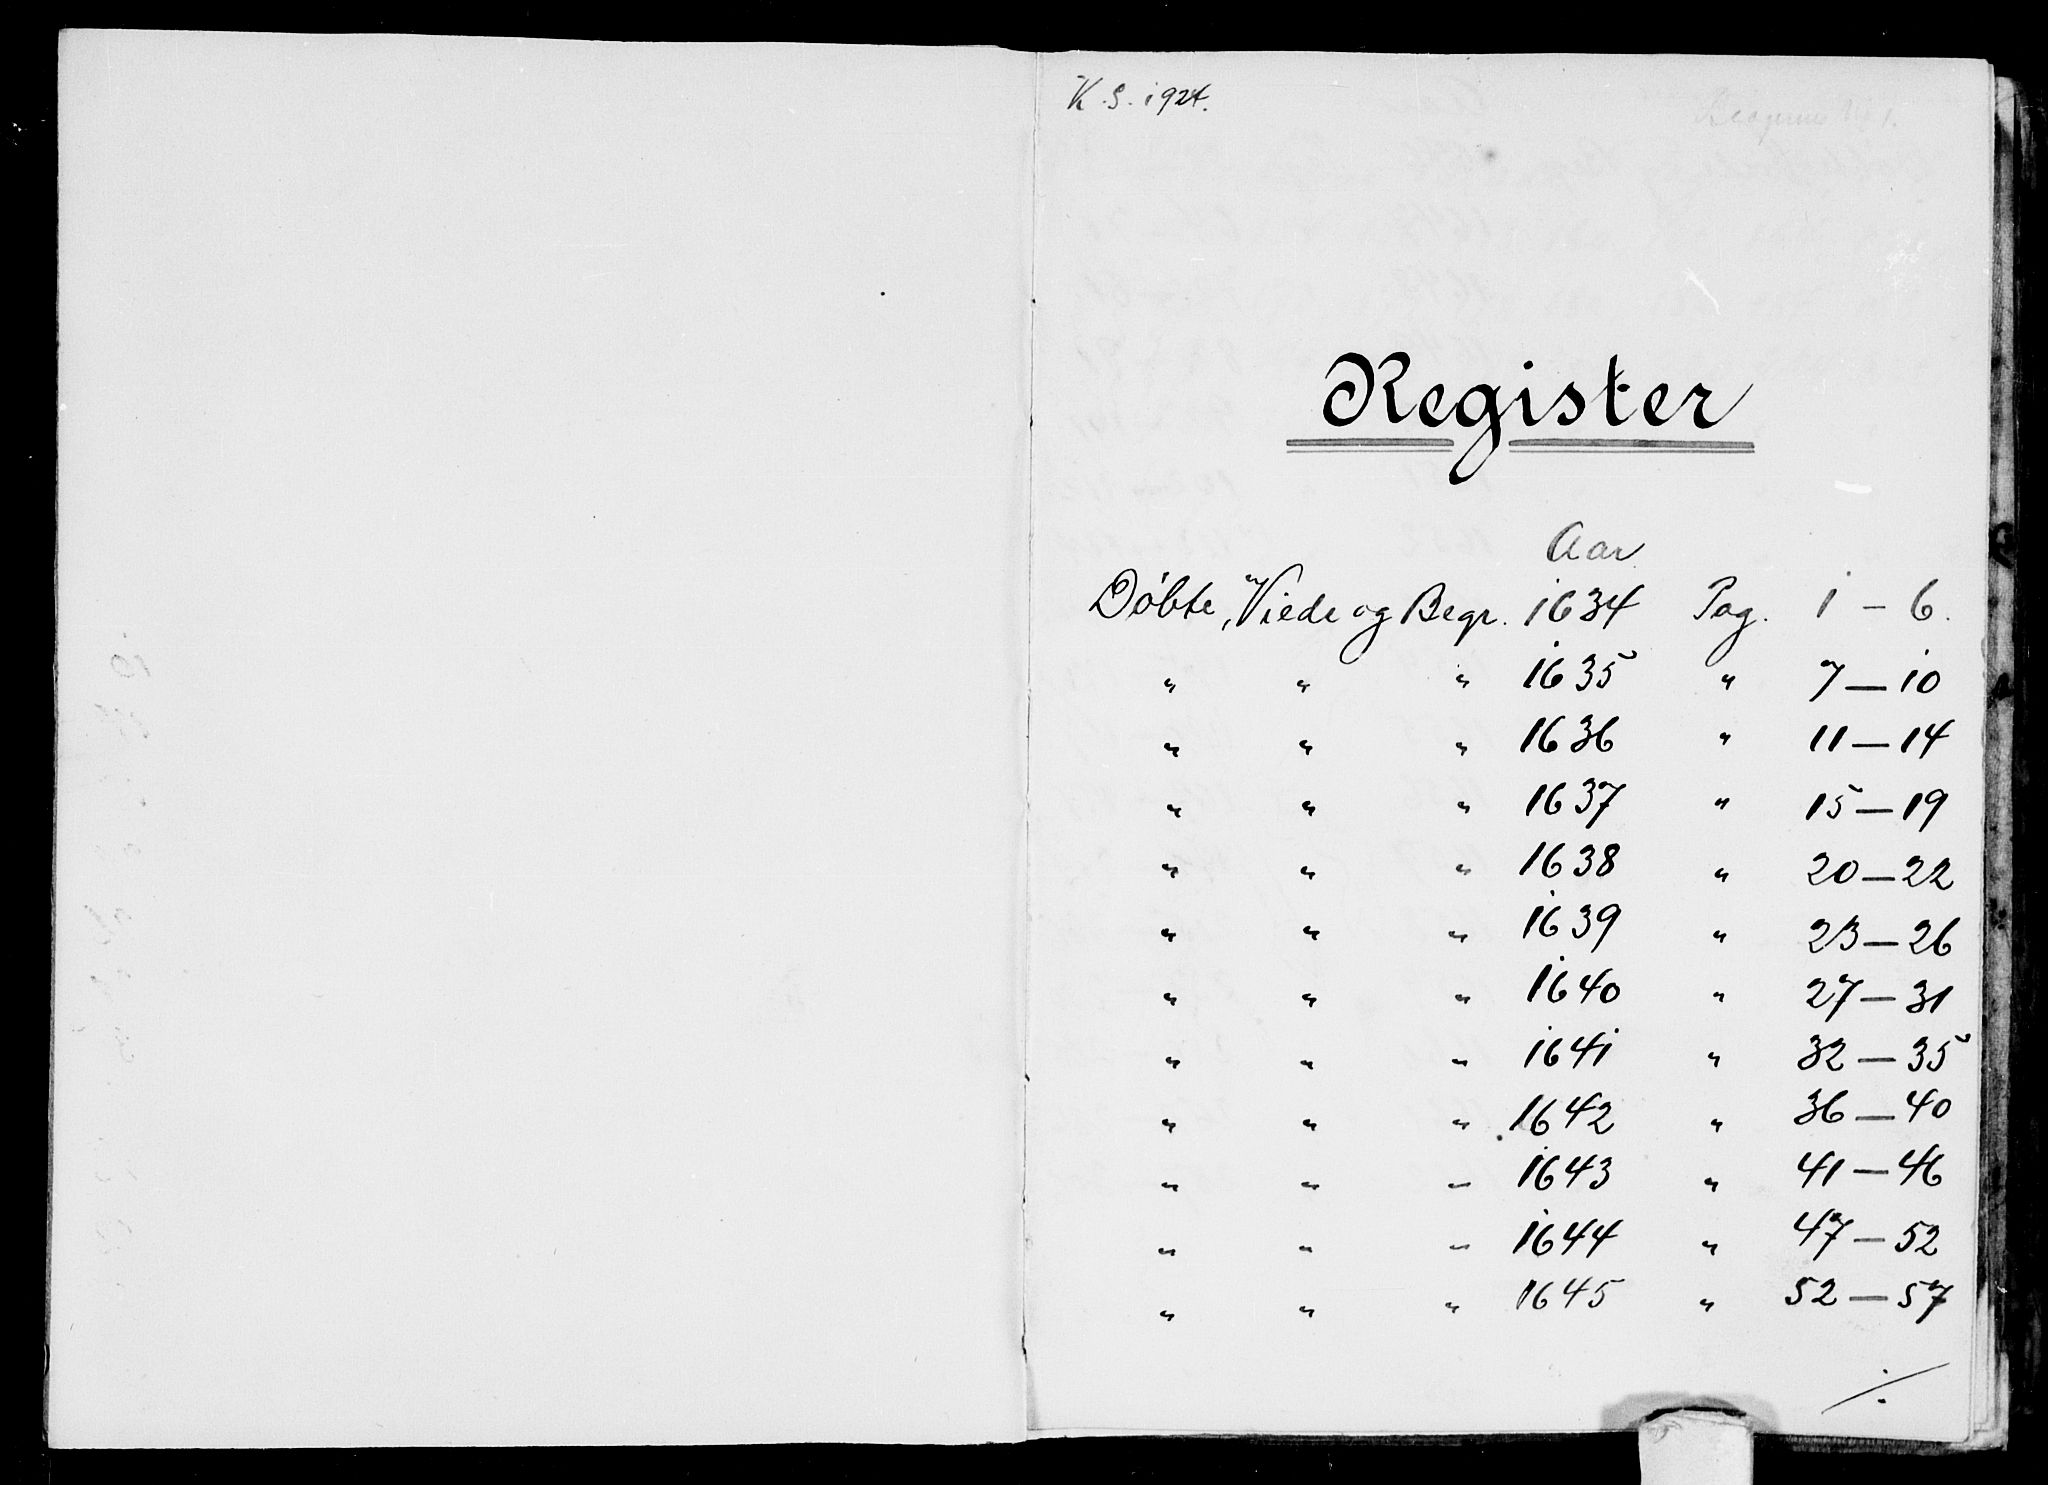 K. S. 1924.
Register
Aar
Döbte, Viede og Begr. 1634 Pag. 1 — 6.
" " " 1635 " 7 — 10
" " " 1636 " 11 — 14
" " " 1637 " 15 — 19
" " " 1638 " 20 — 22
" " " 1639 " 23 — 26
" " " 1640 " 27 — 31
" " " 1641 " 32 — 35
" " " 1642 " 36 — 40
" " " 1643 " 41 — 46
" " " 1644 " 47 — 52
" " " 1645 " 52 — 57
./.